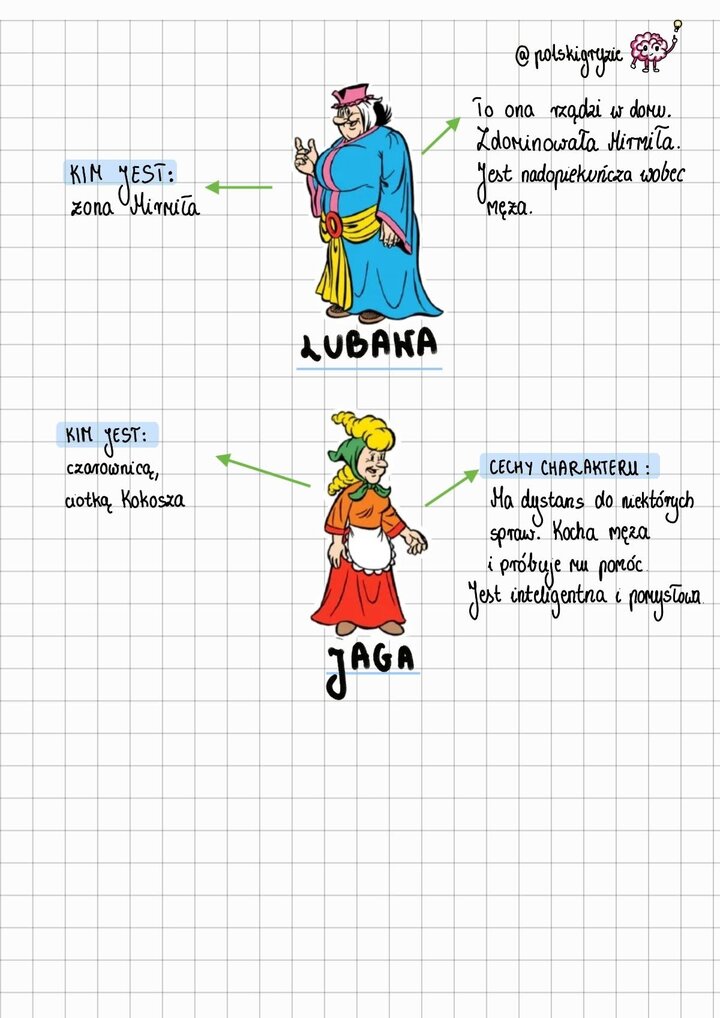 @polskigryzie
To ona rządzi w domu.
Zdominowała Mirmiła.
Jest nadopiekuńcza wobec
męża.
KIM JEST:
żona Mirmiła
LUBAWA
KIM JEST:
czarownicą,
ciotką Kokosza
CECHY CHARAKTERU:
Ma dystans do niektórych
spraw. Kocha męża
i próbuje mu pomóc
Jest inteligentna i pomysłowa.
JAGA